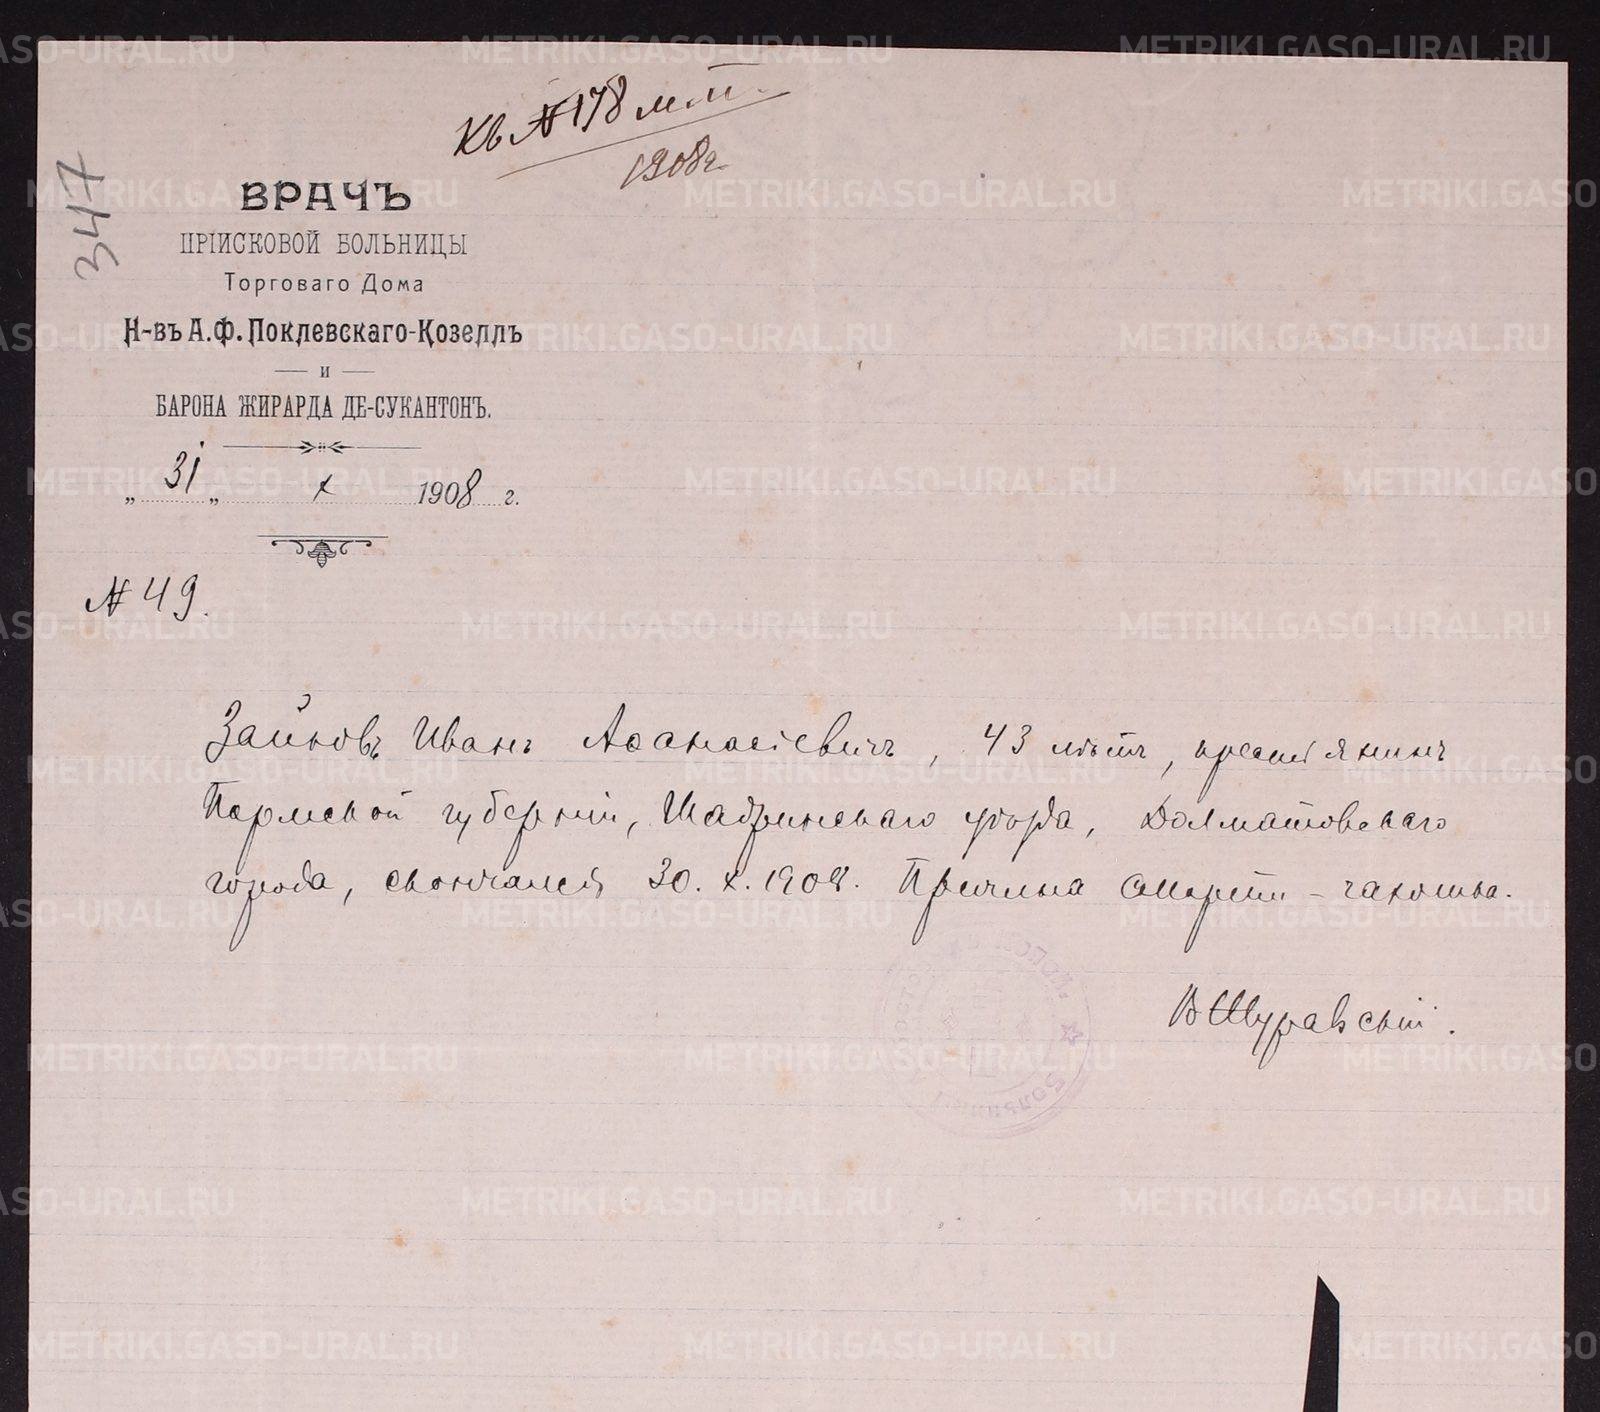 Къ № 178 м.м.
1908 г.
347
ВРАЧЪ
ПРІИСКОВОЙ БОЛЬНИЦЫ
Торговаго Дома
Н-въ А.Ф. Поклевскаго-Козеллъ
и
БАРОНА ЖИРАРДА ДЕ-СУКАНТОНЪ.
„ 31 „ X 1908 г.
№ 49.
Иванъ Аѳанасіевичъ, 43 лѣтъ, крестьянинъ
Пермской губерніи, Шадринскаго уѣзда, Долматовскаго
города, скончался 30. X. 1908. Причина смерти – чахотка.
METRIKI.GASO-URAL.RU